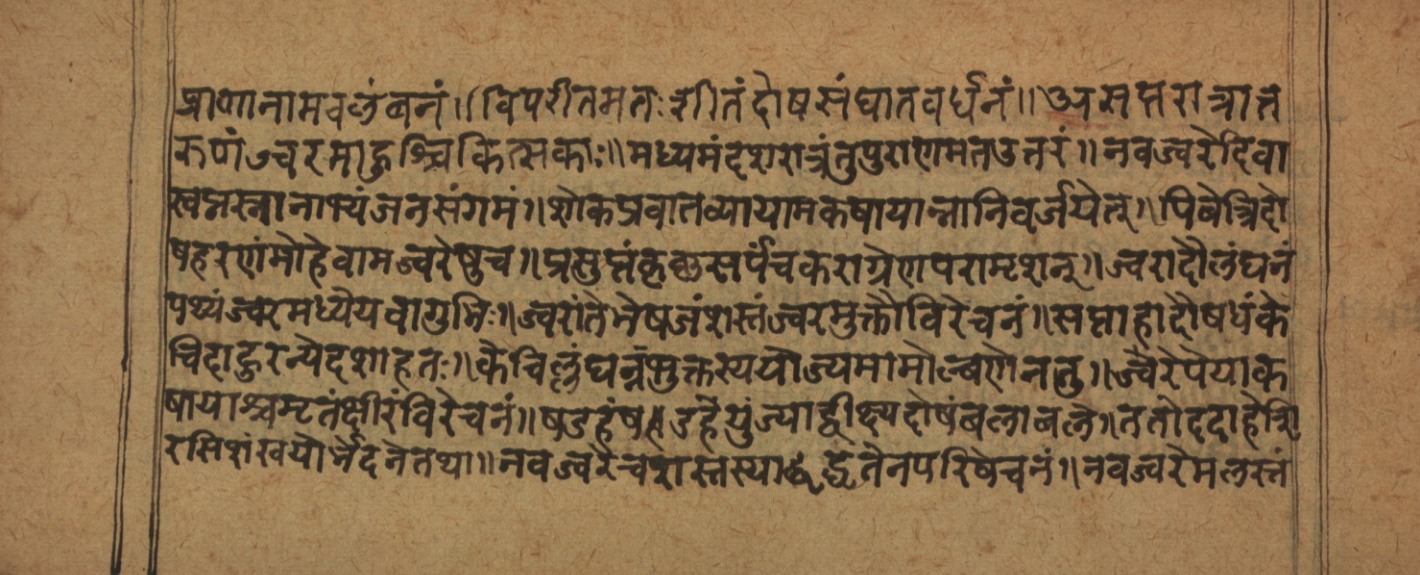 प्राणानामवलंबनं॥विपरीतमतःशीतंदोषसंघातवर्धनं॥असप्तरात्रात्त
रुणंज्वरमाहुश्चिकित्सकाः॥मध्यमंदशरात्रंतुपुराणमतउत्तरं॥नवज्वरेदिवा
स्वप्नस्नानाभ्यंजनसंगमं॥शोकप्रवातव्यायामकषायान्नानिवर्जयेत्॥पिबेत्रिदो
षहरणंमोहेवामज्वरेषुच॥प्रसुप्तंकृष्णसर्पंचकराग्रेणपरामृशन्॥ज्वरादौलंघनं
पथ्यंज्वरमध्येयवागुभिः॥ज्वरांतेभेषजंशस्तंज्वरमुक्तौविरेचनं॥सप्ताहादौषधंके
चिदाहुरन्येदशाहतः॥केचिल्लंघन्नंभुक्तस्ययोज्यमामोल्बणेनतु॥ज्वरेपेयाक
षायाश्चमृतंक्षीरंविरेचनं॥षडहंषडहेयुंज्याद्वीक्ष्यदोषंबलाबले॥ततोददाहेशि
रसिशंखयोर्भेदनेतथा॥नवज्वरेचशस्तस्याद्धृतेनपरिषेचनं॥नवज्वरेमलस्तं